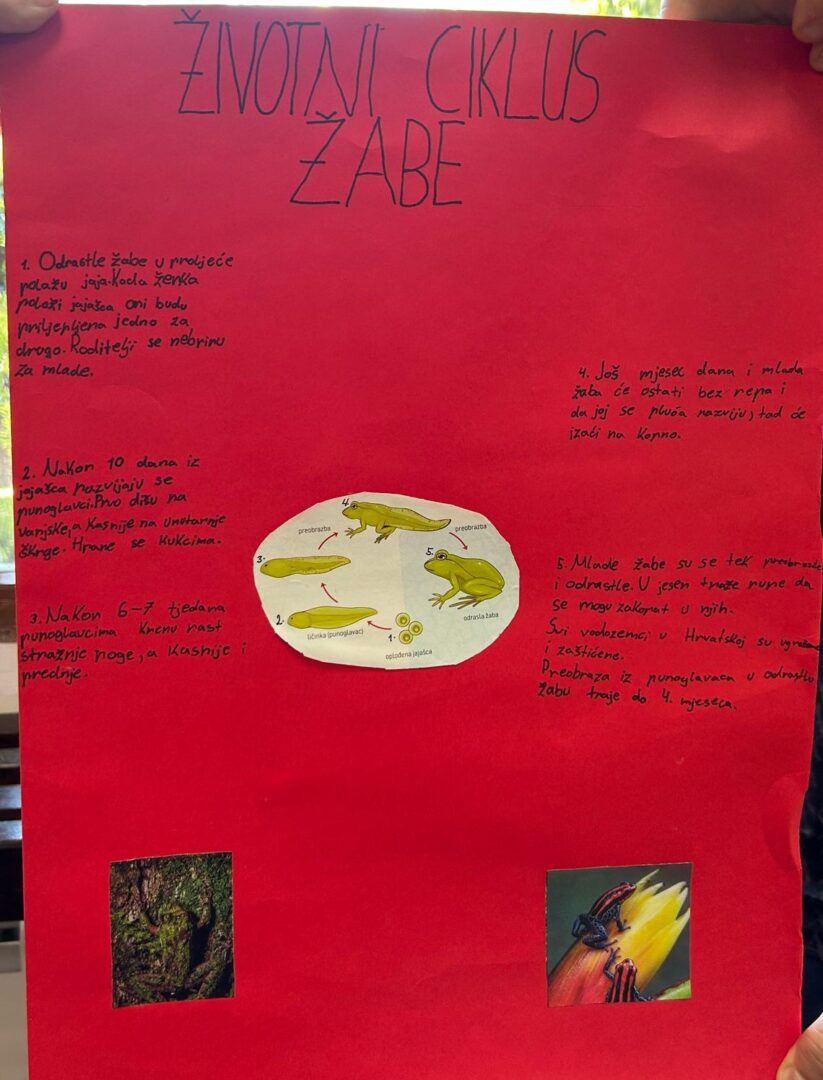 ŽIVOTNI CIKLUS
ŽABE
1. Odrastle žabe u proljeće
polažu jaja. Kada ženka
polaži jajašca oni budu
priljepljena jedno za
drugo. Roditelji se nebrinu
za mlade.
2. Nakon 10 dana iz
jajašca razvijaju se
punoglavci. Prvo dišu na
vanjske, a kasnije na unutarnje
škrge. Hrane se kukcima.
3. Nakon 6-7 tjedana
punoglavcima krenu rast
stražnje noge, a kasnije i
prednje.
4.
preobrazba
preobrazba
3.
5.
2.
ličinka (punoglavac)
1.
oplođena jajašca
odrasla žaba
4. Još mjesec dana i mlada
žaba će ostati bez repa i
da joj se pluća razviju, tad će
izaći na kopno.
5. Mlade žabe su se tek preobrazile
i odrastle. U jesen traže rupe da
se mogu zakopat u njih.
Svi vodozemci u Hrvatskoj su
i zaštićene.
Preobraza iz punoglavaca u odrastlu
žabu traje do 4. mjeseca.